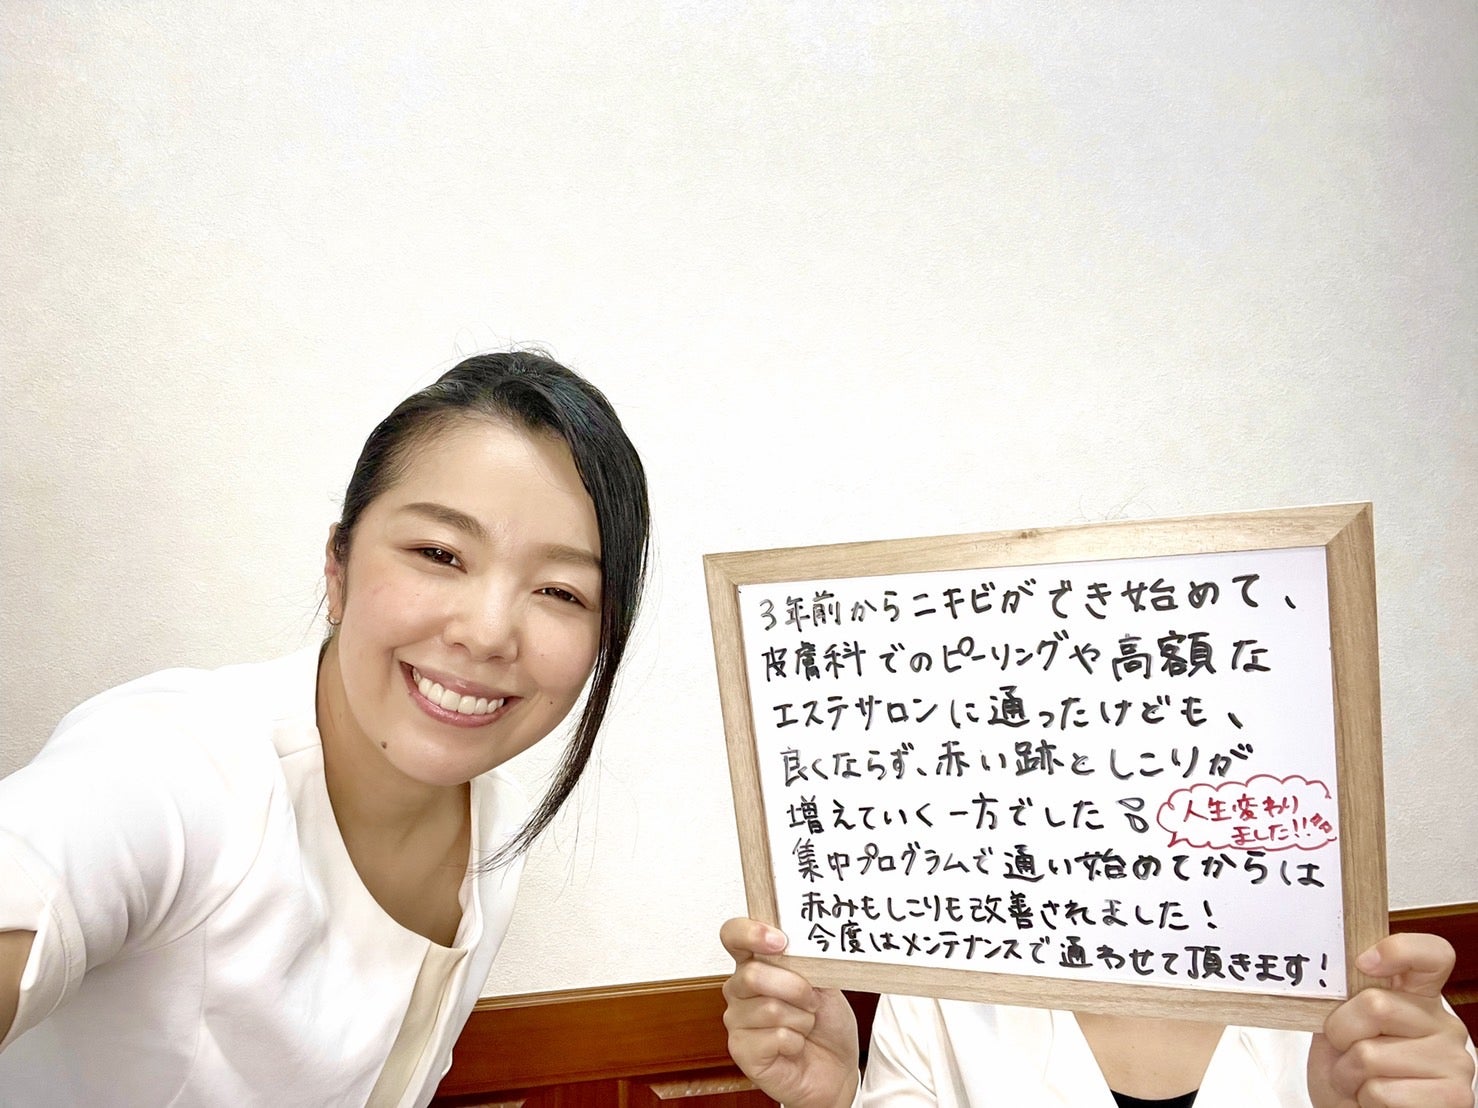 3年前からニキビができ始めて、
皮膚科でのピーリングや高額な
エステサロンに通ったけども、
良くならず、赤い跡としこりが
増えていく一方でした
人生変わり
ました!!
集中プログラムで通い始めてからは
赤みもしこりも改善されました!
今度はメンテナンスで通わせて頂きます!